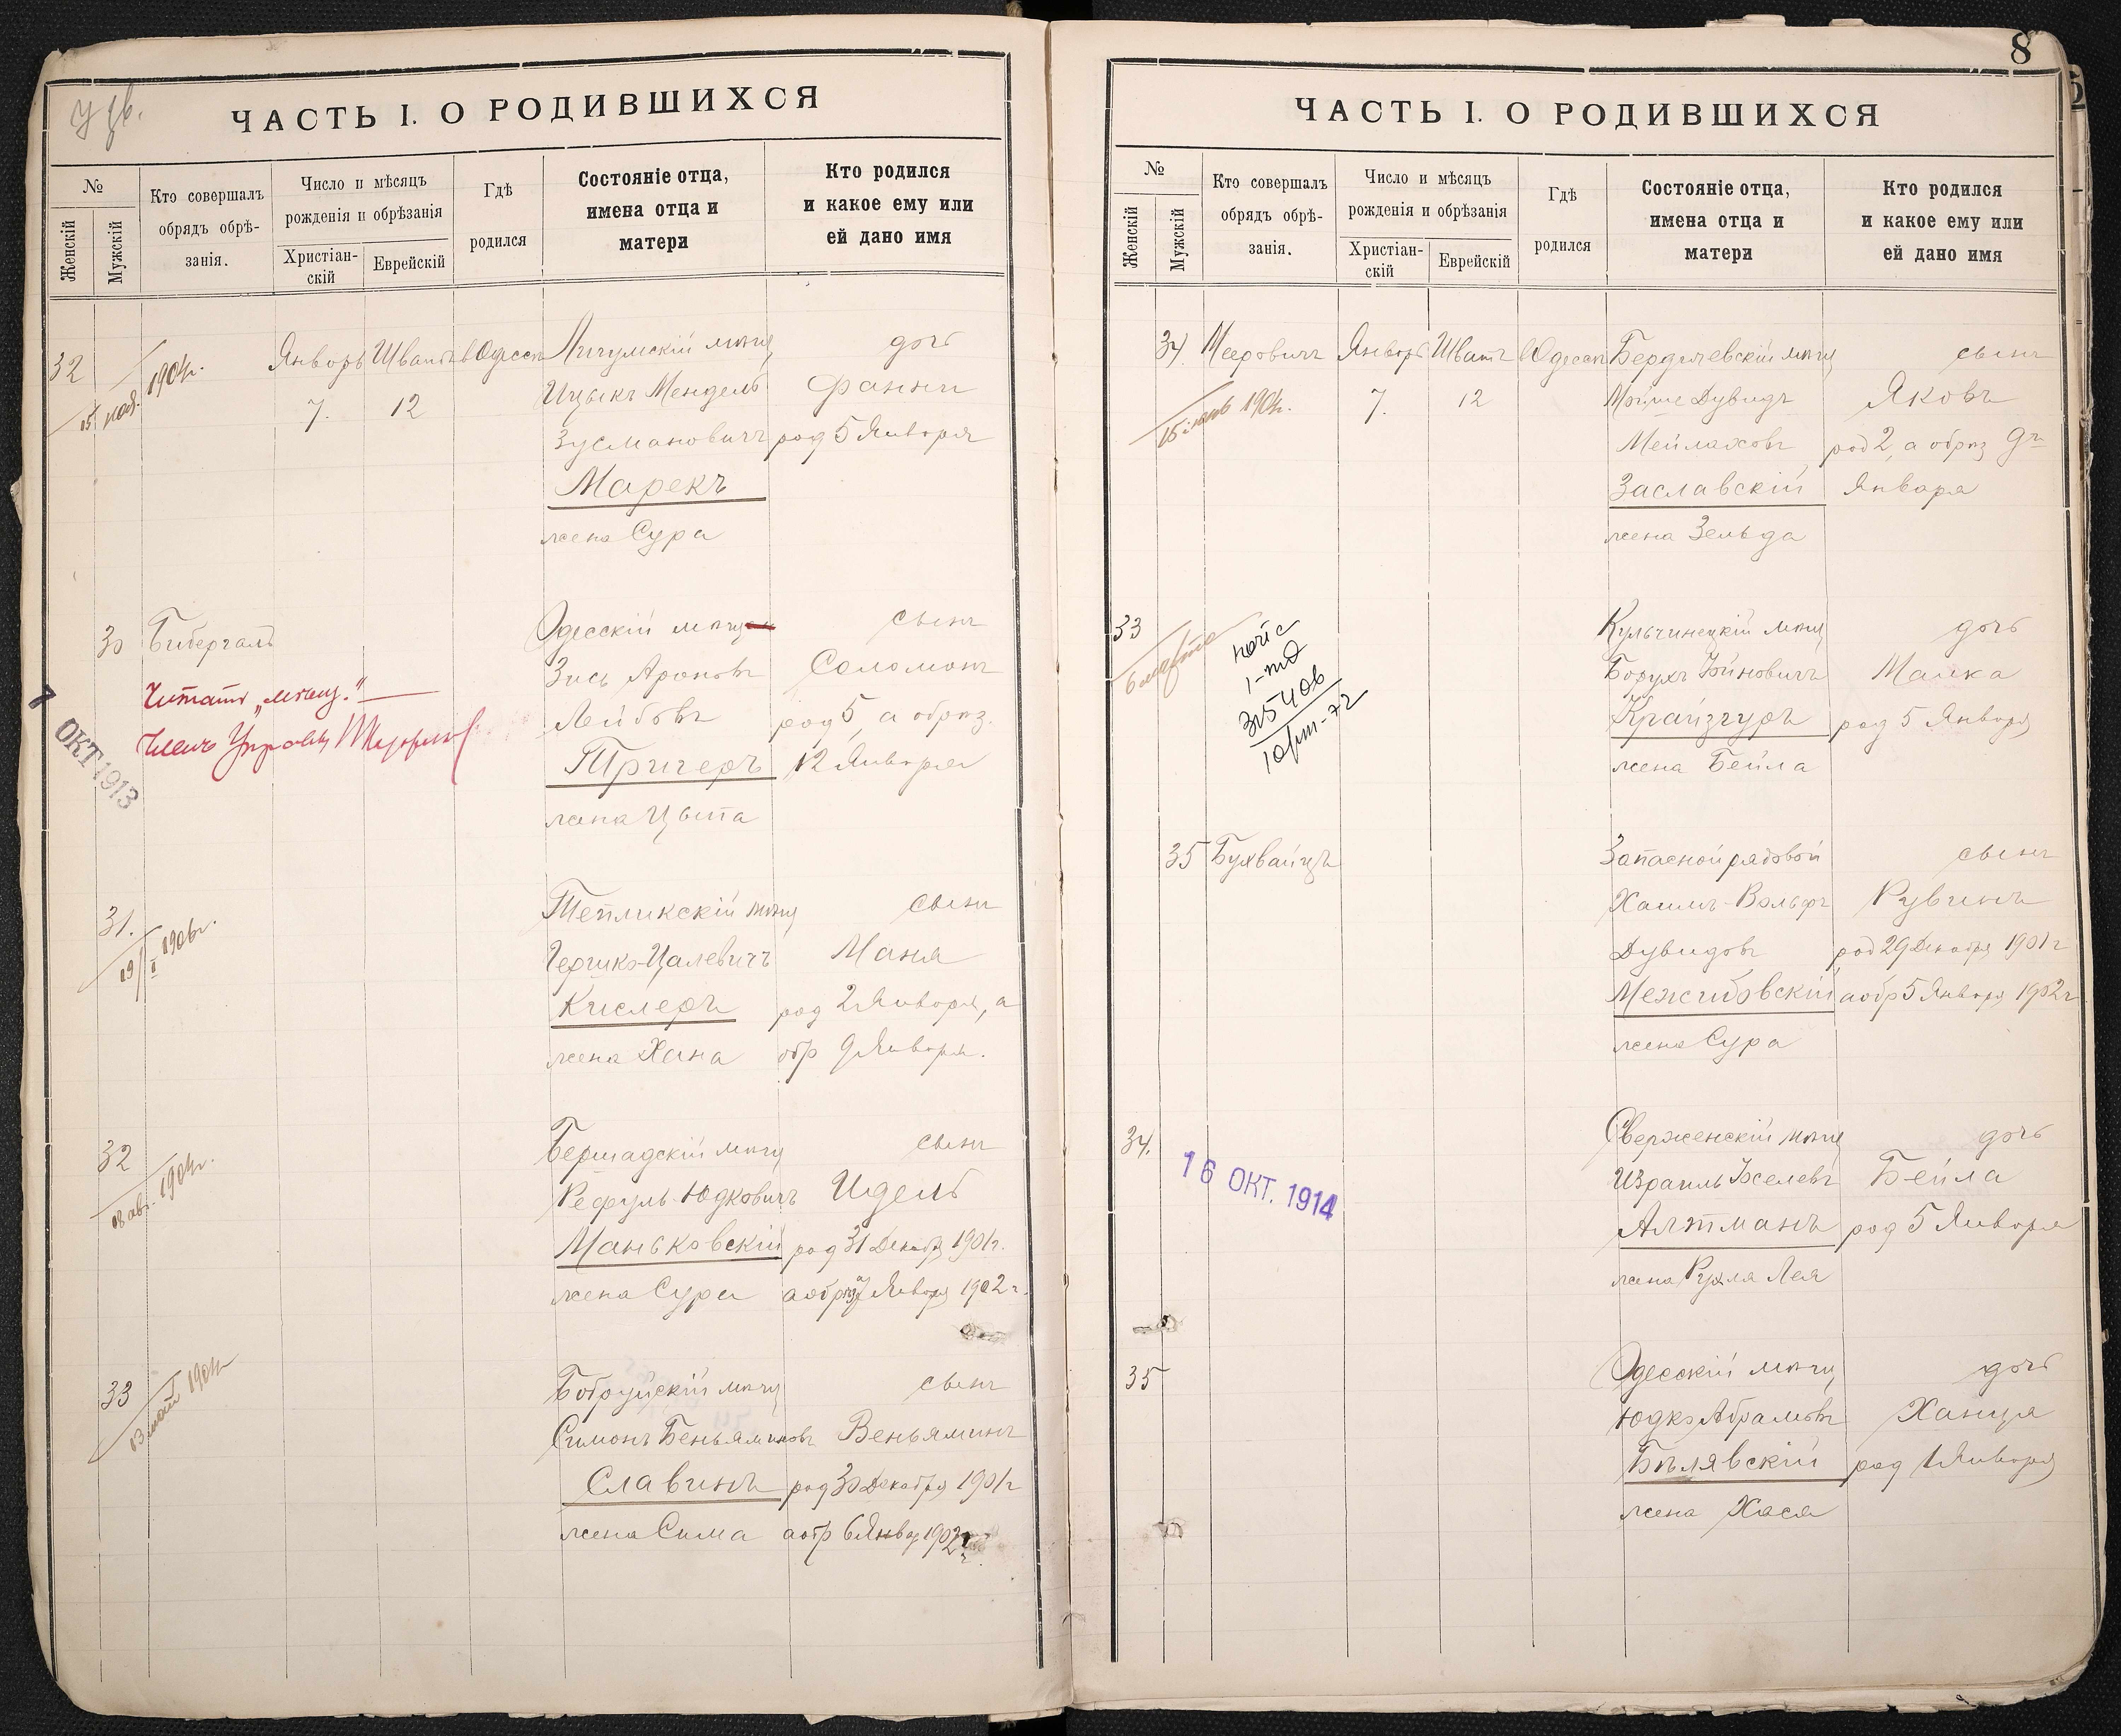 У дв.
ЧАСТЬ I. О РОДИВШИХСЯ
№
Женскій
Мужскій
Кто совершалъ
обрядъ обрѣ-
занія.
Число и мѣсяцъ
рожденія и обрѣзанія
Христіан-
скій
Еврейскій
Гдѣ
родился
Состояніе отца,
имена отца и
матери
Кто родился
и какое ему или
ей дано имя
32
15 ноя. 1904г.
Январь Шватъ в Одессѣ
7. 12
мѣщ дочь
Ицыкъ Мендель Фанни
Зусмановичъ род 5 Января
Марекъ
жена Сура
30 Бибергалъ Одесскій мѣщ сынъ
Зись Ароновъ Соломонъ
Лейбовъ род 5, а обрѣз.
Тригеръ 12 Января
жена Цвета
Читать „мѣщ."
Членъ Управы
7 ОКТ 1913
31. Тепликскій мѣщ сынъ
19/I 1906г.
Гершко-Цалевичъ Маня
Кислеръ род 2 Января, а
жена Хана обр 9 Января.
32 Бершадскій мѣщ сынъ
18 авг. 1904г.
Рефуль-Юдковичъ Идель
Маньковскій род 31 Декабр 1901г.
жена Сура а обрѣз Января 1902г.
33 Бобруйскій мѣщ сынъ
13 1904г
Симонъ Беньяминовъ Веньяминъ
Славинъ род 30 Декабря 1901г
жена Сима а обр 6 Январ 1902 г.
8
ЧАСТЬ I. О РОДИВШИХСЯ
№
Женскій
Мужскій
Кто совершалъ
обрядъ обрѣ-
занія.
Число и мѣсяцъ
рожденія и обрѣзанія
Христіан-
скій
Еврейскій
Гдѣ
родился
Состояніе отца,
имена отца и
матери
Кто родился
и какое ему или
ей дано имя
34. Мееровичъ Январь Шватъ в Одессѣ Бердичевскій мѣщ сынъ
15 1904г. 7. 12 Мойше Дувидъ Яковъ
Мейлаховъ род 2, а обрѣз 9го
Заславскій Января
жена Зельда
33 Кульчинецкій мѣщ дочь
Борухъ Іойновичъ Малка
Крайзгуръ род 5 Января
жена Бейла
35 Бухвайцъ Запасной рядовой сынъ
Хаимъ-Вольфъ Рувинъ
Дувидовъ род 29 Декабря 1901г
Межибовскій а обр 5 Января 1902г
жена Сура
34. Сверженскій мѣщ дочь
16 ОКТ. 1914
Израиль Іоселевъ Бейла
Алтманъ род 5 Января
жена Рухля Лея
35 Одесскій мѣщ дочь
Юдко Абрамовъ Ханця
Бѣлявскій род 1 Января
жена Хася